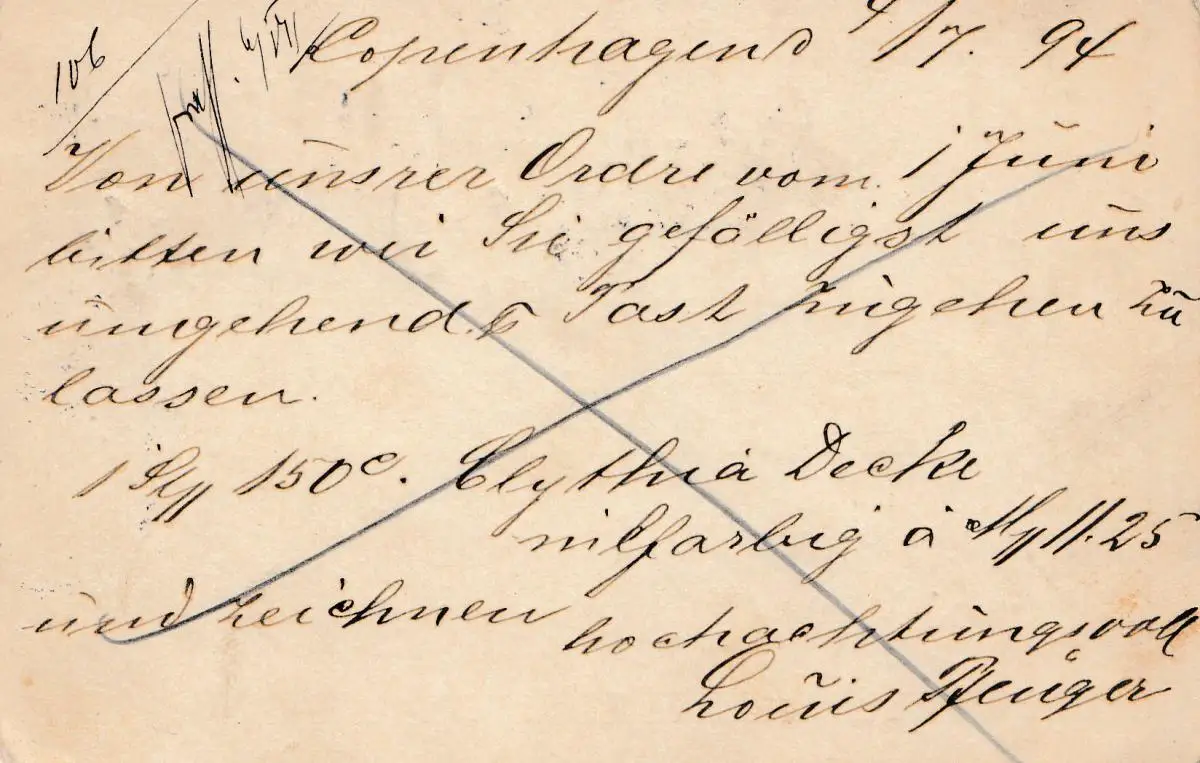 106
6/VII
Kopenhagen d 4/7. 94
Von ünsrer Ordre vom 1 Jüni
bitten wir Sie gefälligst üns
ümgehend p Post zugehen zü
lassen.
1 St 150c. Clythia Decke
nilfarbig à M 11.25
ünd zeichnen
hochachtüngsvoll
Loüis